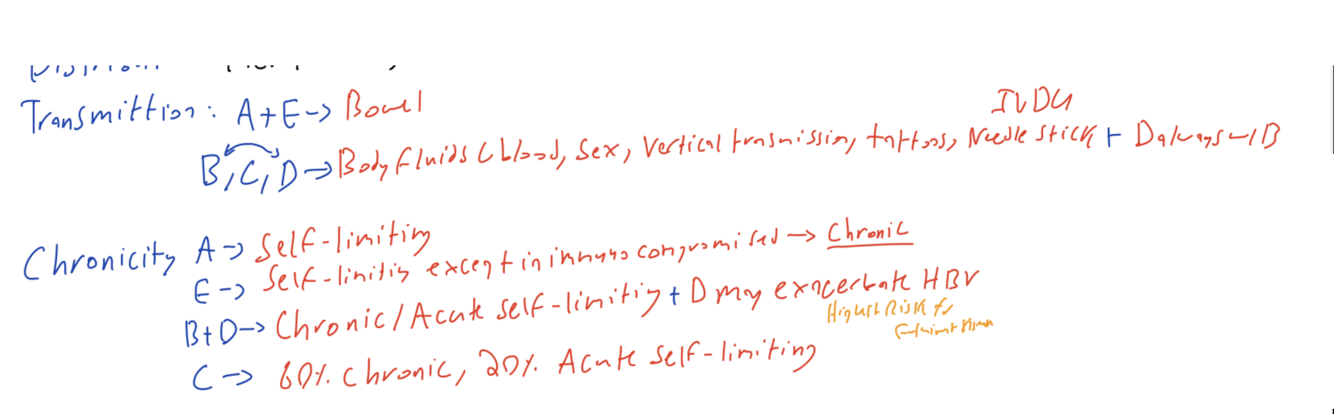 Transmittion: A+E-> Bowel
IVDU
B, C, D -> Body fluids (blood, sex, vertical trasmission, tattoos, Needle stick + D always w/ B
Chronicity A-> Self-limiting
E-> Self-limitig except in immuno compromised -> Chronic
B+D-> Chronic/Acute self-limitig + D may exacerbate HBV
Highest Risk for
C-> 80% chronic, 20% Acute self-limiting